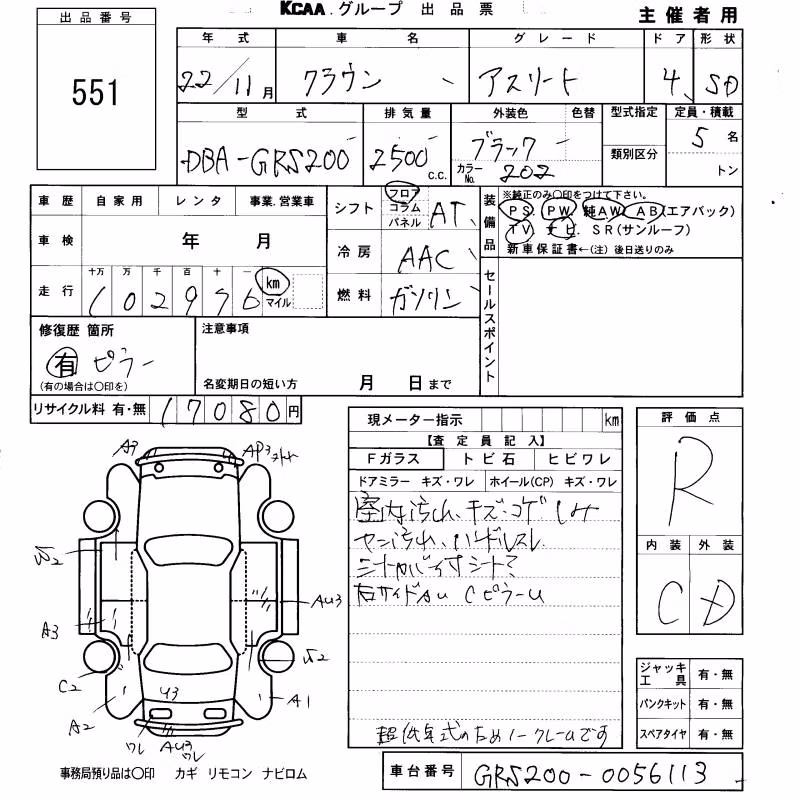 KCAA.グループ 出品票 主催者用
出品番号
551
年式 車名 グレード ドア 形状
22/11月 クラウン アスリート 4 SD
型式 排気量 外装色 色替 型式指定 定員・積載
DBA-GRS200 2500c.c. ブラック 類別区分 5名
カラーNo. 202 トン
車歴 自家用 レンタ 事業.営業車
車検 年 月
走行 十万 万 千 百 十 一
102976 km マイル
シフト フロア コラム パネル AT
冷房 AAC
燃料 ガソリン
装備品
※純正のみ〇印をつけて下さい。
PS. PW. 純AW. AB(エアバック)
TV. ナビ. SR(サンルーフ)
新車保証書←(注) 後日送りのみ
セールスポイント
修復歴 箇所
有 ピラー
(有の場合は〇印を)
注意事項
名変期日の短い方 月 日まで
リサイクル料 有・無 17080円
現メーター指示 km
【査定員記入】
Fガラス トビ石 ヒビワレ
ドアミラー キズ・ワレ ホイール(CP) キズ・ワレ
室内汚れ、キズ・コゲ・シミ
ヤニ汚れ、ハンドルスレ
右サイド Cピラー
超低年式のためノークレームです
評価点
R
内装 外装
C D
ジャッキ工具 有・無
パンクキット 有・無
スペアタイヤ 有・無
A3 AP3
2
AU3
A3
2
C2
A2
U3
A1
ワレ AU3
ワレ
事務局預り品は〇印 カギ リモコン ナビロム
車台番号 GRS200-0056113